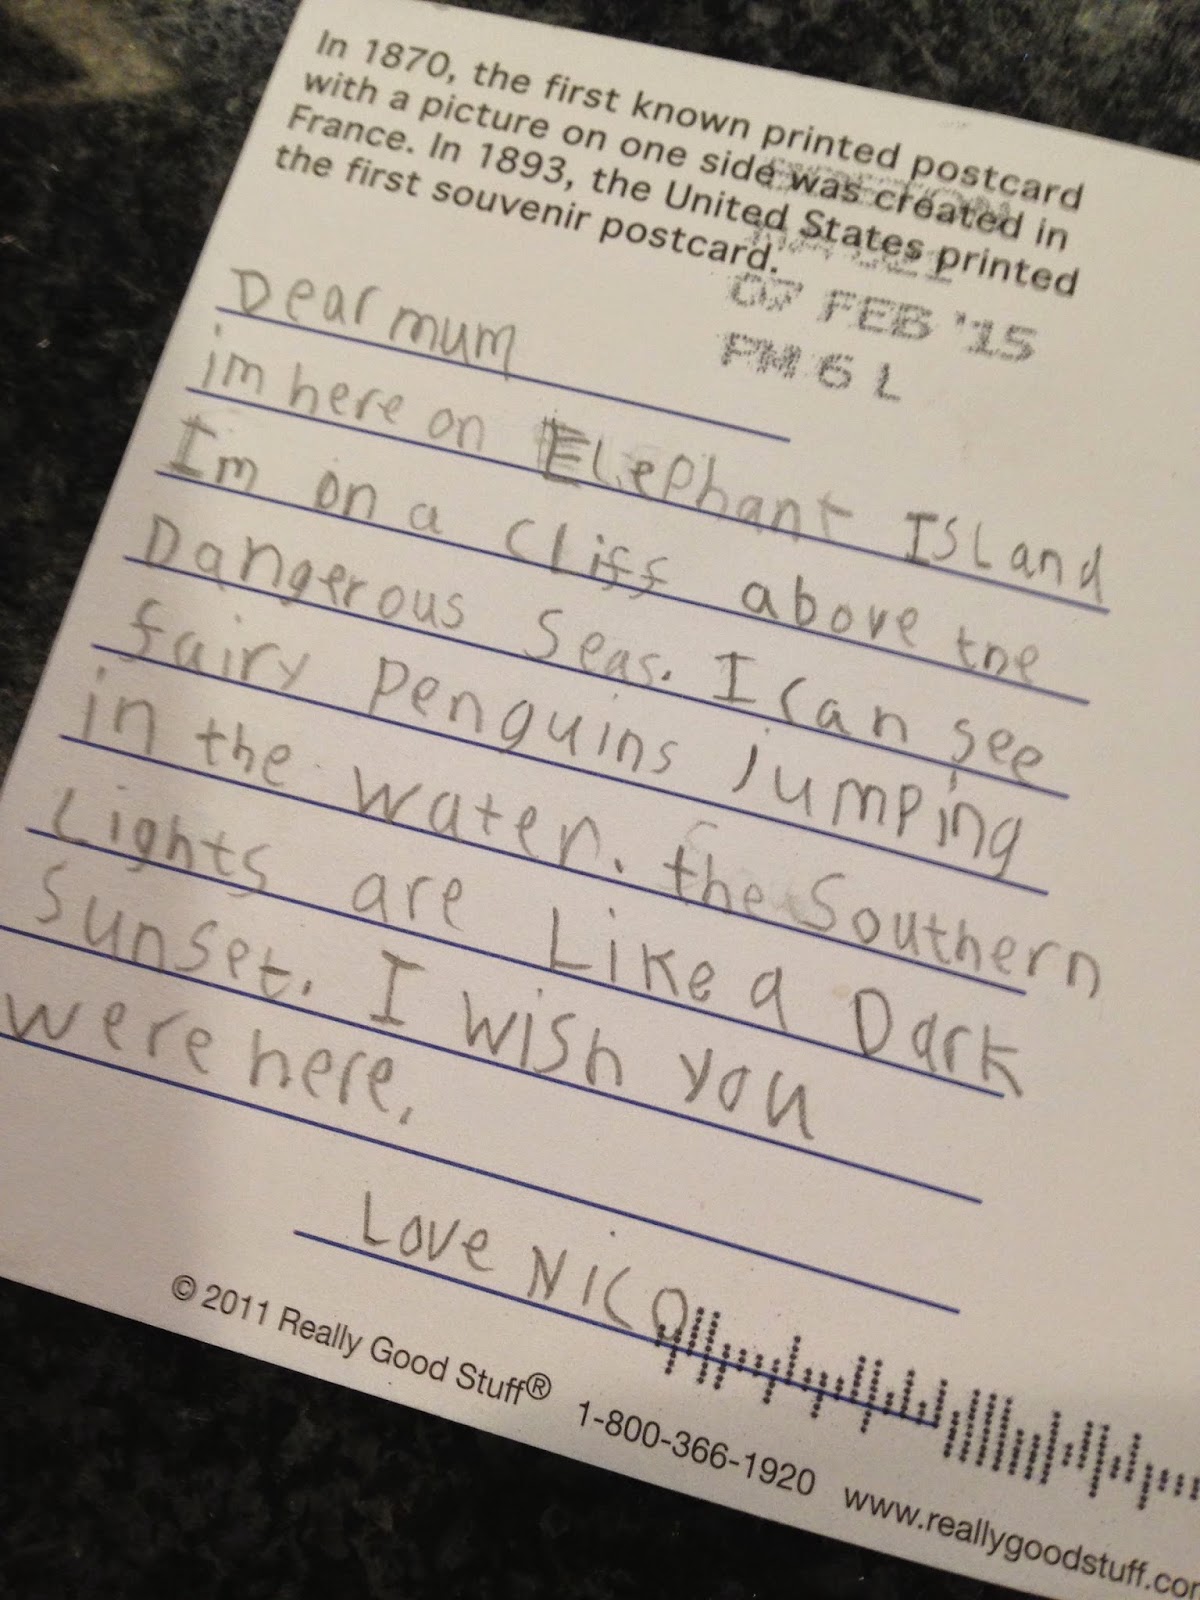 In 1870, the first known printed postcard
with a picture on one side was created in
France. In 1893, the United States printed
the first souvenir postcard.
07 FEB '15
PM 6 L
Dear mum
im here on Elephant Island
Im on a cliff above the
Dangerous Seas. I can see
fairy penguins jumping
in the water. the Southern
Lights are Like a Dark
sunset. I wish you
were here.
Love NICO
© 2011 Really Good Stuff® 1-800-366-1920 www.reallygoodstuff.com